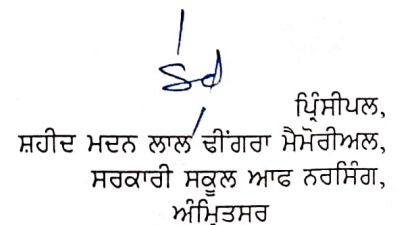 Sd
ਪ੍ਰਿੰਸੀਪਲ,
ਸ਼ਹੀਦ ਮਦਨ ਲਾਲ ਢੀਂਗਰਾ ਮੈਮੋਰੀਅਲ,
ਸਰਕਾਰੀ ਸਕੂਲ ਆਫ ਨਰਸਿੰਗ,
ਅੰਮ੍ਰਿਤਸਰ